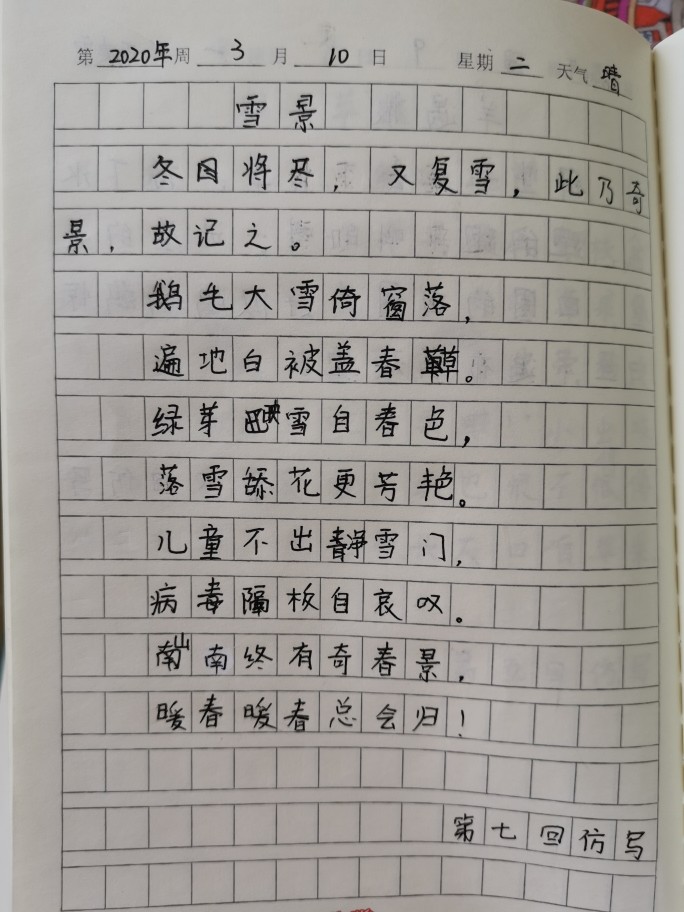 第 2020年 周 3 月 10 日 星期 二 天气 晴
雪景
冬日将尽，又复雪，此乃奇
景，故记之。
鹅毛大雪倚窗落，
遍地白被盖春草。
绿芽映雪自春色，
落雪舔花更芳艳。
儿童不出静雪门，
病毒隔板自哀叹。
南山南终有奇春景，
暖春暖春总会归！
第七回仿写